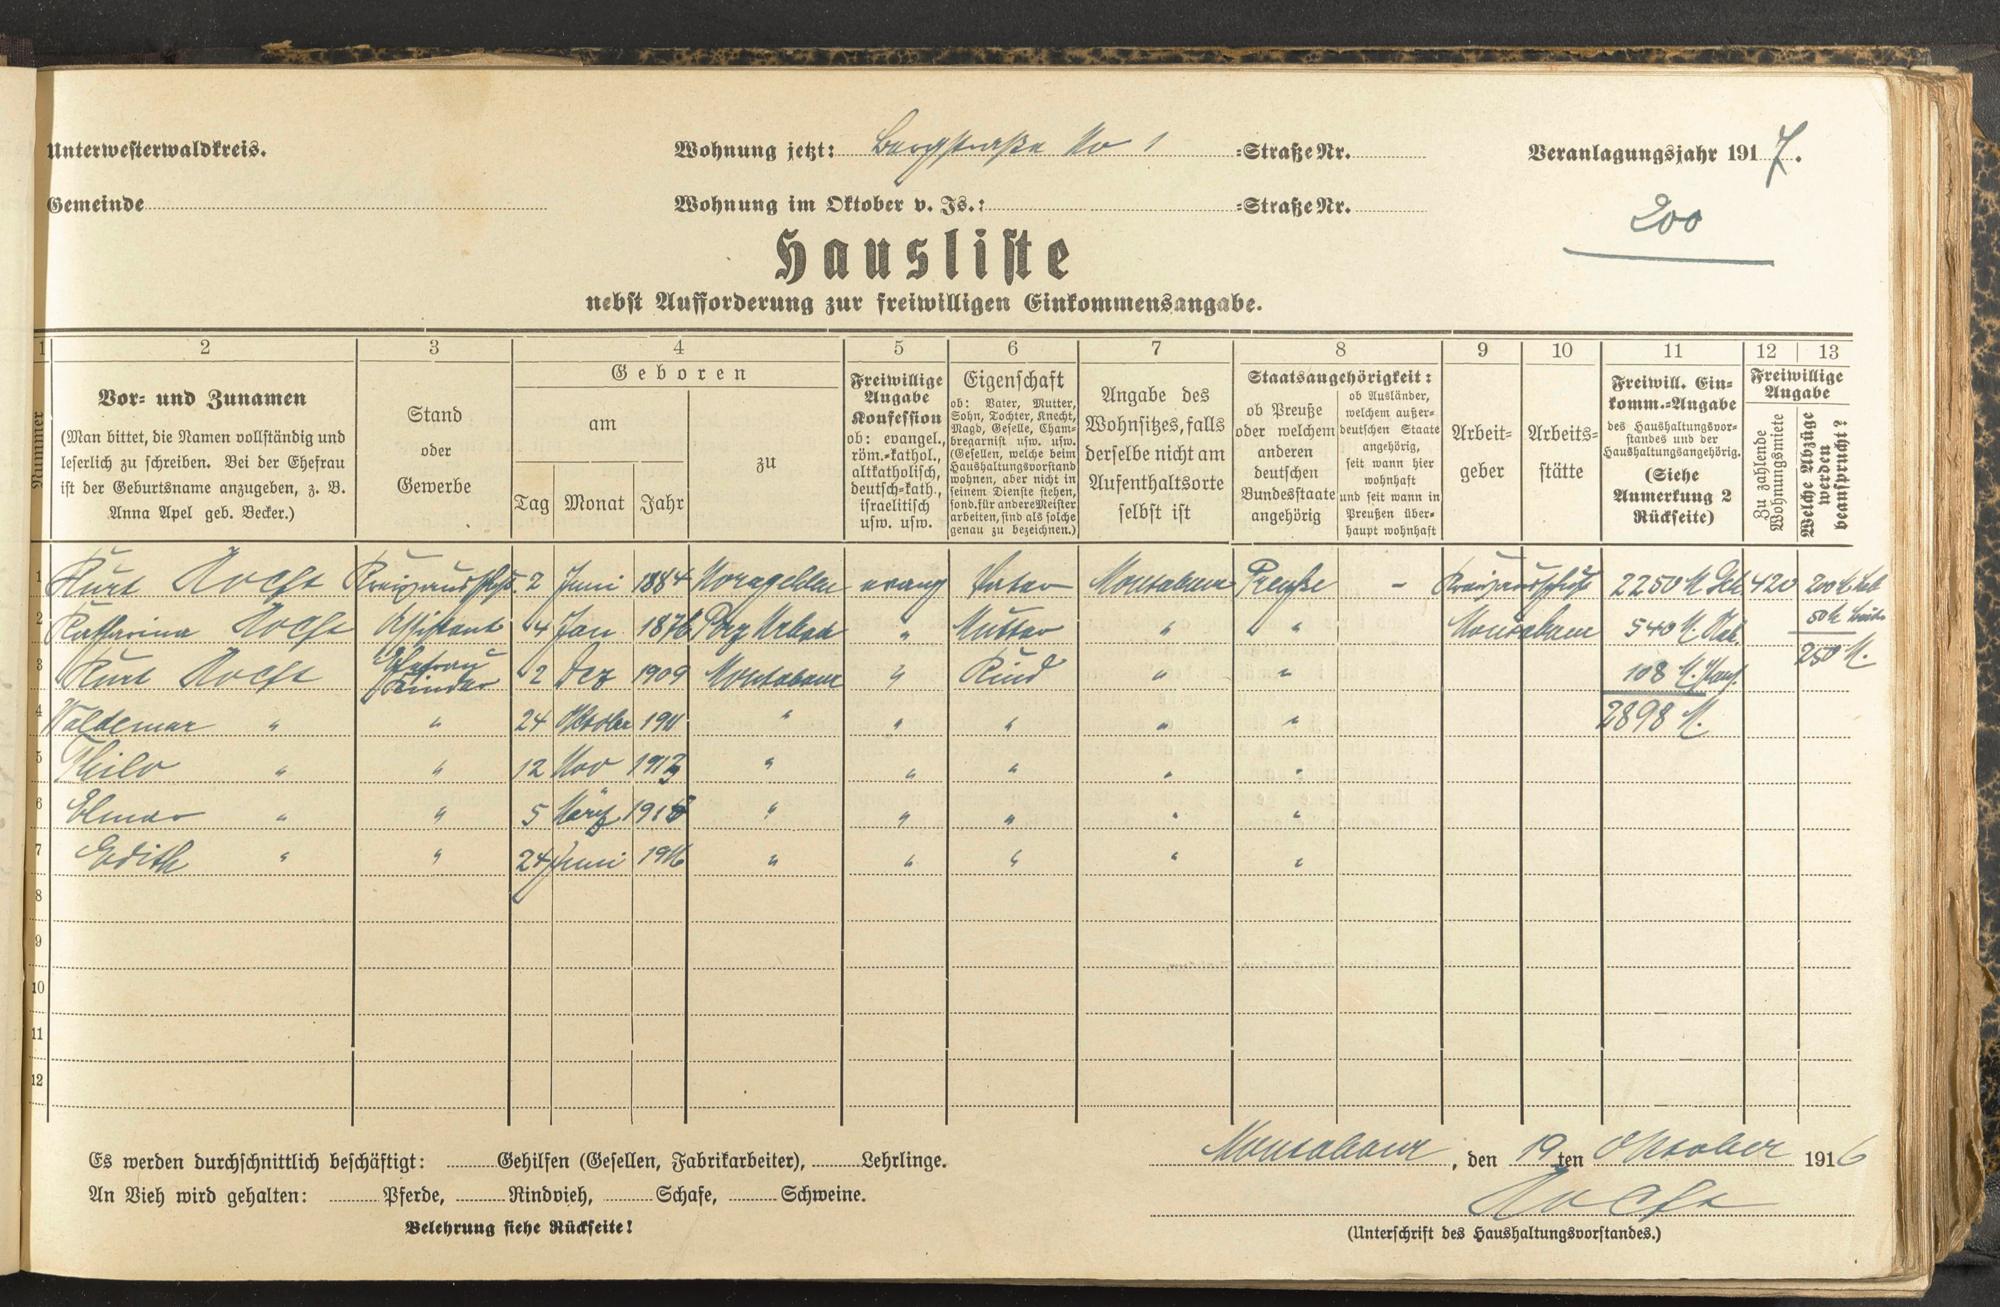 Unterwesterwaldkreis.
Wohnung jetzt: Bergstraße No 1 =Straße Nr.
Veranlagungsjahr 1917.
Gemeinde
Wohnung im Oktober v. Js.: =Straße Nr.
200
Hausliste
nebst Aufforderung zur freiwilligen Einkommensangabe.
1 2 3 4 5 6 7 8 9 10 11 12 13
Nummer
Vor- und Zunamen
(Man bittet, die Namen vollständig und
leserlich zu schreiben. Bei der Ehefrau
ist der Geburtsname anzugeben, z. B.
Anna Apel geb. Becker.)
Stand
oder
Gewerbe
Geboren
am
Tag Monat Jahr
zu
Freiwillige
Angabe
Konfession
ob: evangel.,
röm.-kathol.,
altkatholisch,
deutsch-kath.,
israelitisch
usw. usw.
Eigenschaft
ob: Vater, Mutter,
Sohn, Tochter, Knecht,
Magd, Geselle, Cham-
bregarnist usw. usw.
(Gesellen, welche beim
Haushaltungsvorstand
wohnen, aber nicht in
seinem Dienste stehen,
sond. für andere Meister
arbeiten, sind als solche
genau zu bezeichnen.)
Angabe des
Wohnsitzes, falls
derselbe nicht am
Aufenthaltsorte
selbst ist
Staatsangehörigkeit:
ob Preuße
oder welchem
anderen
deutschen
Bundesstaate
angehörig
ob Ausländer,
welchem außer-
deutschen Staate
angehörig,
seit wann hier
wohnhaft
und seit wann in
Preußen über-
haupt wohnhaft
Arbeit-
geber
Arbeits-
stätte
Freiwill. Ein-
komm.-Angabe
des Haushaltungsvor-
standes und der
Haushaltungsangehörig.
(Siehe
Anmerkung 2
Rückseite)
Freiwillige
Angabe
Zu zahlende
Wohnungsmiete
Welche Abzüge
werden
beansprucht?
1 Kurt 2 Juni 1884 evang Vater Montabaur Preuße - 2250 M 420
2 Katharina Assistent 4 Jan 1876 " Mutter " " Montabaur 540 M.
3 Kurt Ehefrau Kinder 2 Dez 1909 Montabaur " Kind " " 108 M. 250 M.
4 Waldemar " " 24 Oktober 1911 " " " " " 2898 M.
5 Thilo " " 12 Nov 1913 " " " " "
6 Elmar " " 5 März " " " " "
7 Edith " " 24 Juni 1916 " " " " "
8
9
10
11
12
Es werden durchschnittlich beschäftigt: Gehilfen (Gesellen, Fabrikarbeiter), Lehrlinge.
An Vieh wird gehalten: Pferde, Rindvieh, Schafe, Schweine.
Belehrung siehe Rückseite!
Montabaur, den 19ten Oktober 1916
(Unterschrift des Haushaltungsvorstandes.)